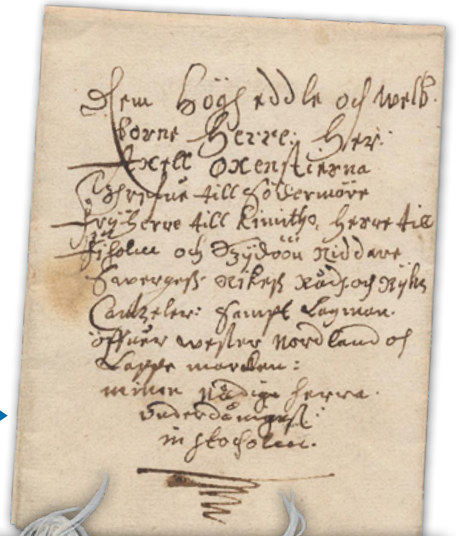 Dem Högh eddle och welb.
borne Herre: Her:
Axell Oxenstierna
Greffue till Södermöre
Fryherre till Kimitho, Herre till
Fiholm och Tydöön Riddare
Swerges Rikes Rådh och Rykz
Cantzeler: Sampt Lagman
öffuer wester Nordland och
Lappe marcken:
minom Nådige herra
Underdånigest
in stocholm.